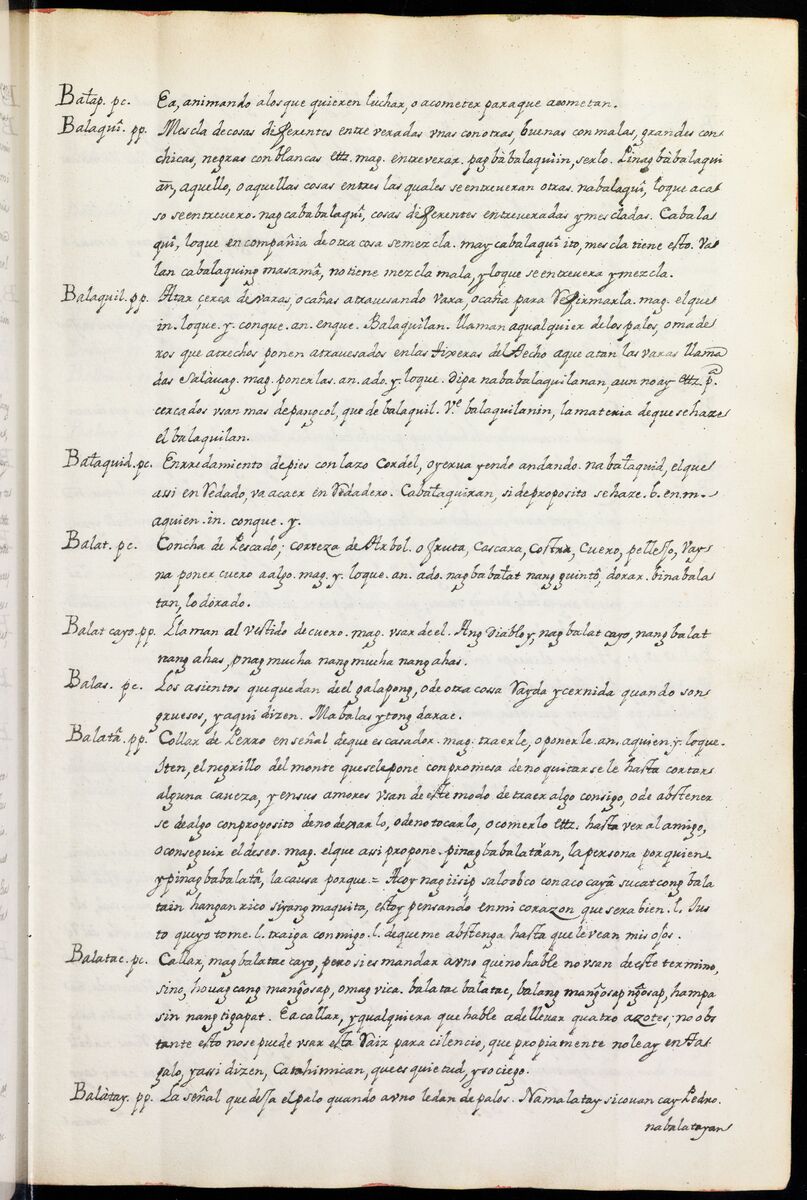 Batap. pc. Ea, animando alos que quieren luchar, o acometer para que acometan.
Balaquî. pp. Mescla de cosas diferentes entre veradas vnas con otras, buenas con malas, grandes con
chicas, negras con blancas ettz. mag. entreverar. pagbàbalaquiin, serlo. Pinagbàbalaqui
añ, aquello, o aquellas cosas entre las quales se entreueran otras. nabalaquî, loque aca
so se entreuero. nagcababalaquî, cosas diferentes entreueradas y mescladas. Cabala
quî, loque en compañia de otra cosa semezcla. may cabalaquî ito, mescla tiene esto. Va
lan cabalaquing masamâ, no tiene mezcla mala, y loque se entrevera y mezcla.
Balaquil. pp. Atar cerca de varas, o cañas atrauesando vara, o caña para defirmarla. mag. el que
in. loque. y. conque. an. enque. Balaquilan. llaman aqualquier de los palos, o made
ros que atrechos ponen atrauesados en las tixeras del techo aque atan las varas llama
das salàuag. mag. ponerlas. an. ado. y. loque. Dipa nababalaquilanan, aun no ay ettz. pª
cercados vsan mas de pangcol, que de balaquil. Vᵉ balaquilanin, la materia de que se haze
el balaquilan.
Bataquid. pc. Enrredamiento de pies con lazo cordel, o yerua yendo andando. nabataquid, el que
assi enrredado, va acaer enrredadero. Cabataquiran, si de proposito se haze. b. en. m.
aquien. in. conque. y.
Balat. pc. Concha de Pescado; corteza de Arbol. o fruta, Cascara, costra, Cuero, pellejo, Vay
na poner cuero a algo. mag. y. loque. an. ado. nagbabatat nang guintô, dorar. binabala
tan, lo dorado.
Balat cayo. pp. Llaman al vestido de cuero. mag. vsar de el. Ang Diabloy, nagbalat cayo, nang balat
nang ahas, pnagmucha nang mucha nang ahas.
Balas. pc. Los asientos que quedan de el galapong, o de otra cossa rayda y cernida quando son
gruesos, y aqui dizen. Mabalas ytong darac.
Balatâ. pp. Collar de Perro en señal de que es casador. mag. traerle, o ponerle. an. aquien. y. loque.
Iten, el negrillo del monte que se le pone con promesa de no quitarsele hasta cortar
alguna caueza, y en sus amores vsan de este modo de traer algo consigo, o de abstener
se de algo con proposito de no dexarlo, o de no tocarlo, o comerlo ettz. hasta ver al amigo,
o conseguir el deseo. mag. el que assi propone. pinagbabalatâan, la persona por quien
y pinagbabalatâ, la causa porque = Acoy nagiisip saloobco conaco cayâ sucat cong bala
tain hangan rico siyang maquita, estoy pensando en mi corazon que sera bien. l. Jus
to que yo tome. l. traiga conmigo. l. de que me abstenga hasta que le vean mis ojos.
Balatac. pc. Callar, magbalatac cayo, pero si es mandar a vno que no hable no vsan de este termino,
sino, houag cang mangosap, o mag vica. balatac balatac, balang mangosap ngosap, hampa
sin nang tigapat. Ea callar, y qualquiera que hable a de lleuar quatro azotes; no obs
tante esto no se puede vsar esta raiz para cilencio, que propiamente no le ay en Ta
galo, y assi dizen, Catahimican, que es quietud, y sociego.
Balàtay. pp. La señal que deja el palo quando a vno le dan de palos. Namalatay sicouan cay Pedro.
nabalatayan